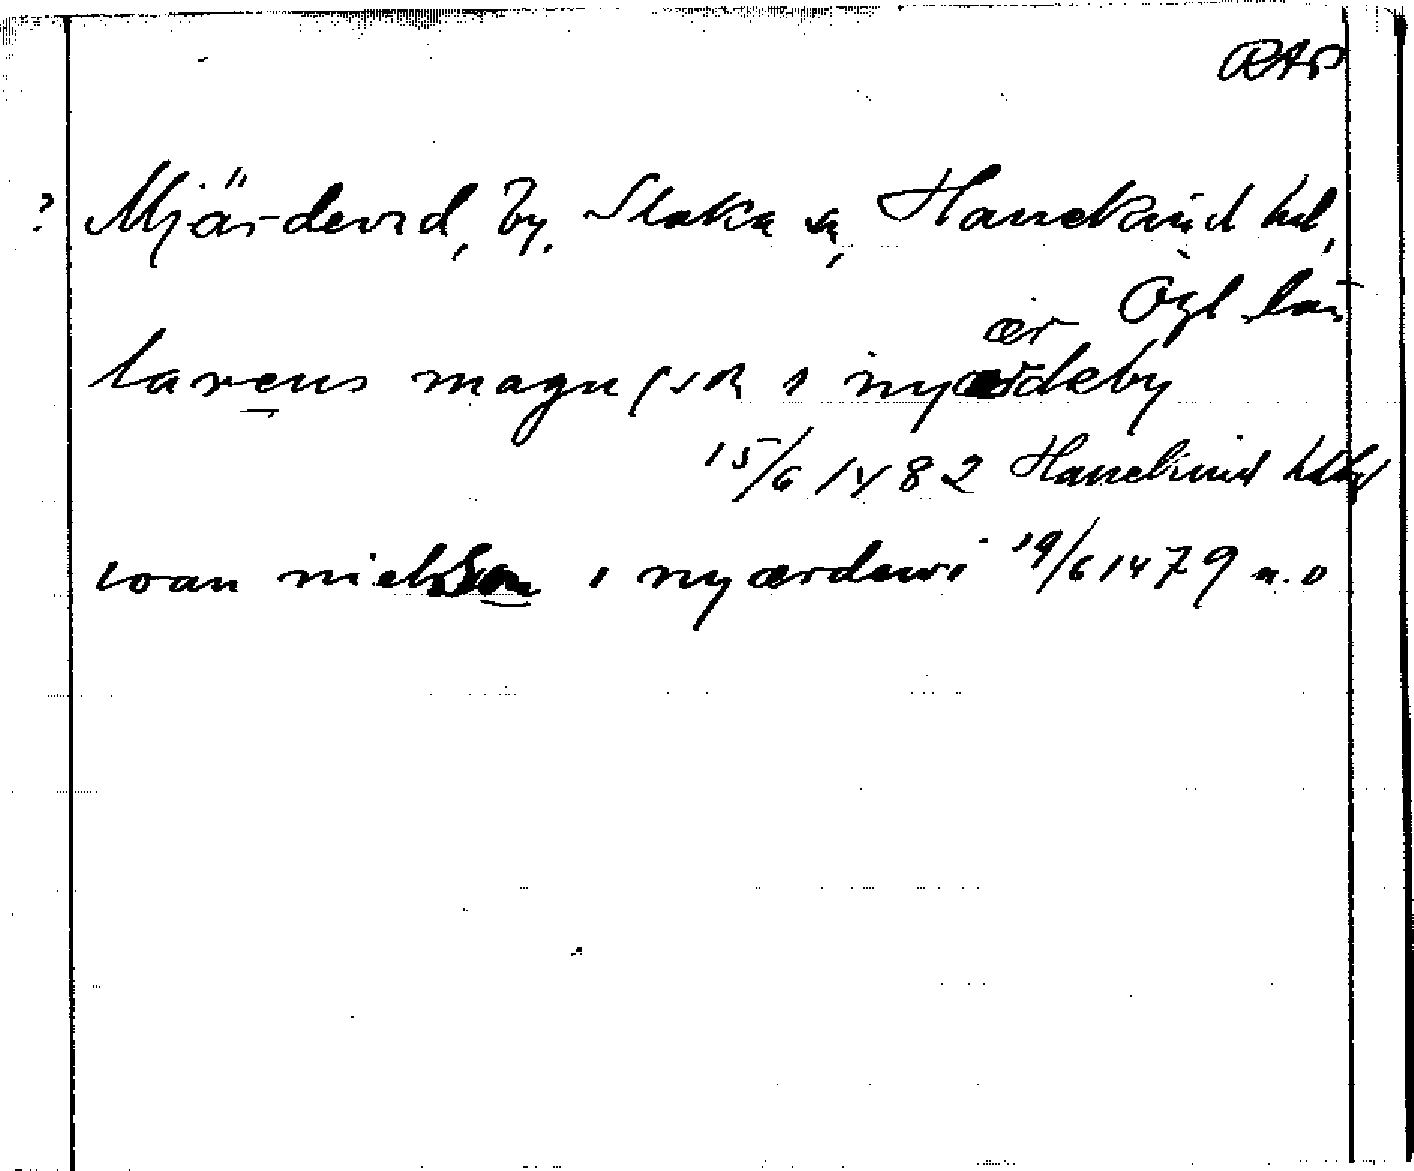 RAP
? Mjärdevid, by, Slaka sn, Hanekind hd,
Ögl län
ær
larens magnsson i nyærdeby
15/6 1482 Hanekind
ioan nielsson i nyærdewi 19/6 1479 a.o